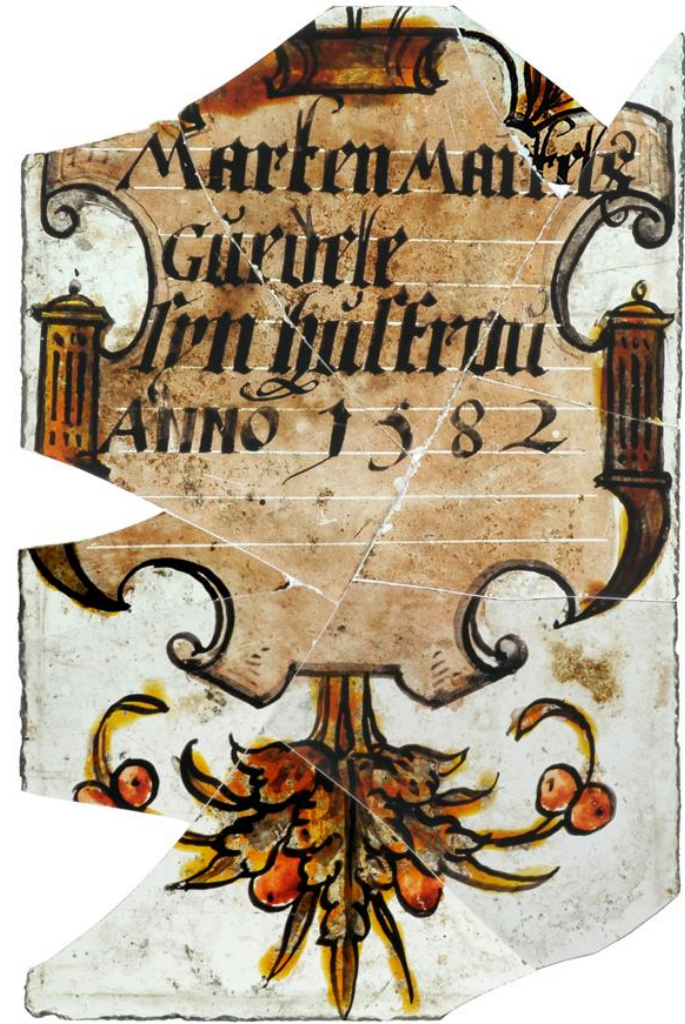 Marten Martens
Gŭevele
syn hŭsfrvŭ
ANNO 1582